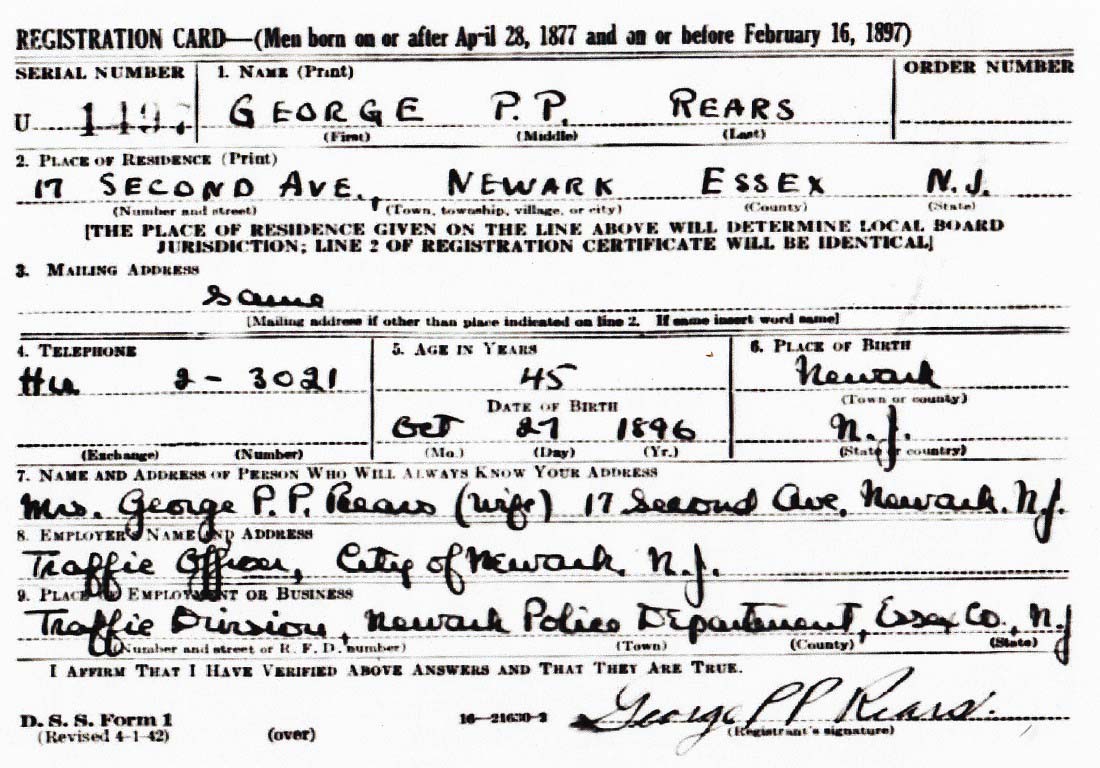 REGISTRATION CARD—(Men born on or after April 28, 1877 and on or before February 16, 1897)
SERIAL NUMBER 1. NAME (Print) ORDER NUMBER
U GEORGE P.P. REARS
(First) (Middle) (Last)
2. PLACE OF RESIDENCE (Print)
17 SECOND AVE., NEWARK ESSEX N.J.
(Number and street) (Town, township, village, or city) (County) (State)
[THE PLACE OF RESIDENCE GIVEN ON THE LINE ABOVE WILL DETERMINE LOCAL BOARD
JURISDICTION; LINE 2 OF REGISTRATION CERTIFICATE WILL BE IDENTICAL]
3. MAILING ADDRESS
Same
[Mailing address if other than place indicated on line 2. If same insert word same]
4. TELEPHONE 5. AGE IN YEARS 6. PLACE OF BIRTH
Hu 2-3021 45 Newark
DATE OF BIRTH (Town or county)
Oct 27 1896 N.J.
(Exchange) (Number) (Mo.) (Day) (Yr.) (State or country)
7. NAME AND ADDRESS OF PERSON WHO WILL ALWAYS KNOW YOUR ADDRESS
Mrs. George P.P. Rears (wife) 17 Second Ave. Newark. N.J.
8. EMPLOYER'S NAME AND ADDRESS
Traffic Officer, City of Newark, N.J.
9. PLACE OF EMPLOYMENT OR BUSINESS
Traffic Division, Newark Police Department, Essex Co., N.J
(Number and street or R. F. D. number) (Town) (County) (State)
I AFFIRM THAT I HAVE VERIFIED ABOVE ANSWERS AND THAT THEY ARE TRUE.
D. S. S. Form 1 16—21630-2 George P P Rears.
(Revised 4-1-42) (over) (Registrant's signature)